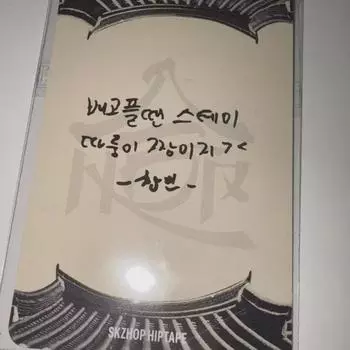 배고플땐 스테이
따룽이 짱이지 ><
-창빈-
SKZHOP HIPTAPE